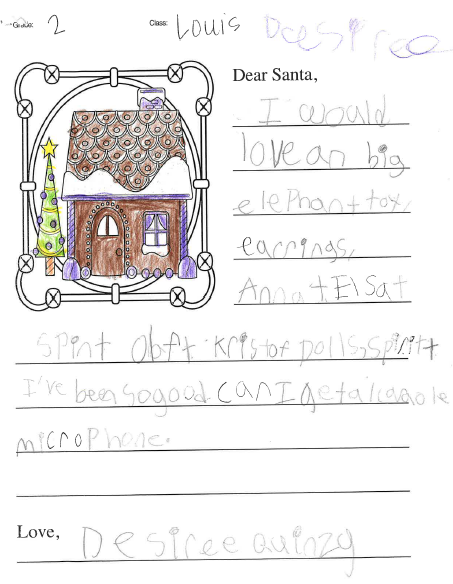 Grade: 2 Class: Louis Desiree
Dear Santa,
I would
love an big
elephant toy,
earrings,
Anna + Elsa +
spirit Kristof dolls, spirit +
I've been so good can I get a
microphone.
Love, Desiree Quinzy